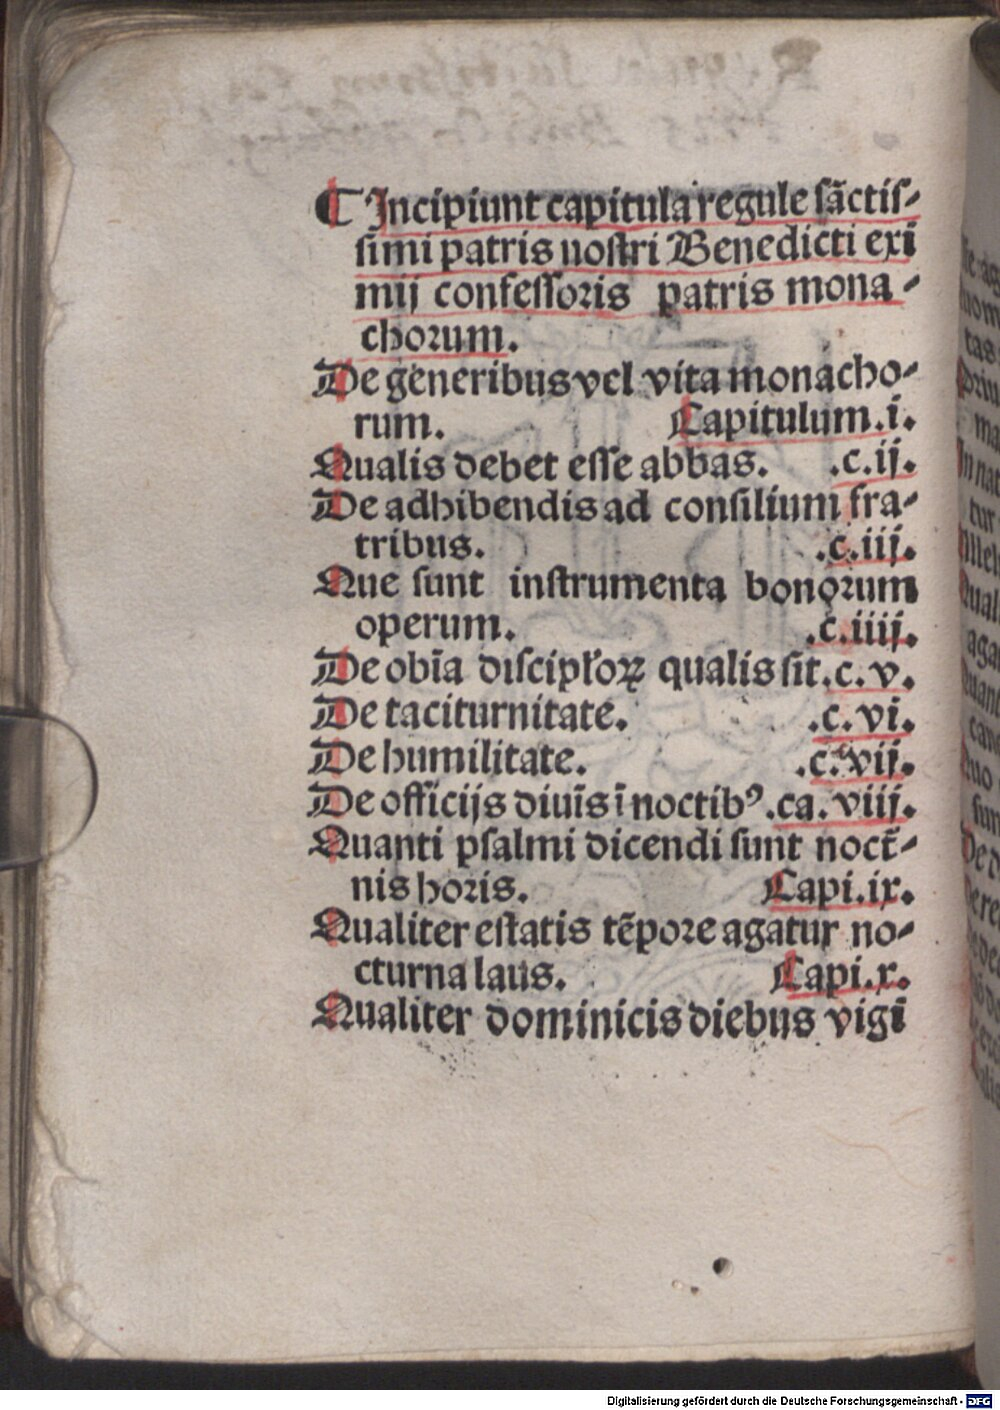 ¶ Incipiunt capitula regule sãctis-
simi patris nostri Benedicti exi
mij confessoris patris mona-
chorum.
De generibus vel vita monacho-
rum. Capitulum.i.
Qualis debet esse abbas. .c.ij.
De adhibendis ad consilium fra-
tribus. .c.iij.
Que sunt instrumenta bonorum
operum. .c.iiij.
De obĩa discipl'oꝝ qualis sit.c.v.
De taciturnitate. .c.vi.
De humilitate. .c.vij.
De officijs diuĩs ĩ noctibꝰ.ca.viij.
Quanti psalmi dicendi sunt noct̃-
nis horis. Capi.ix.
Qualiter estatis tẽpore agatur no-
cturna laus. Capi.x.
Qualiter dominicis diebus vigĩ
Digitalisierung gefördert durch die Deutsche Forschungsgemeinschaft - DFG